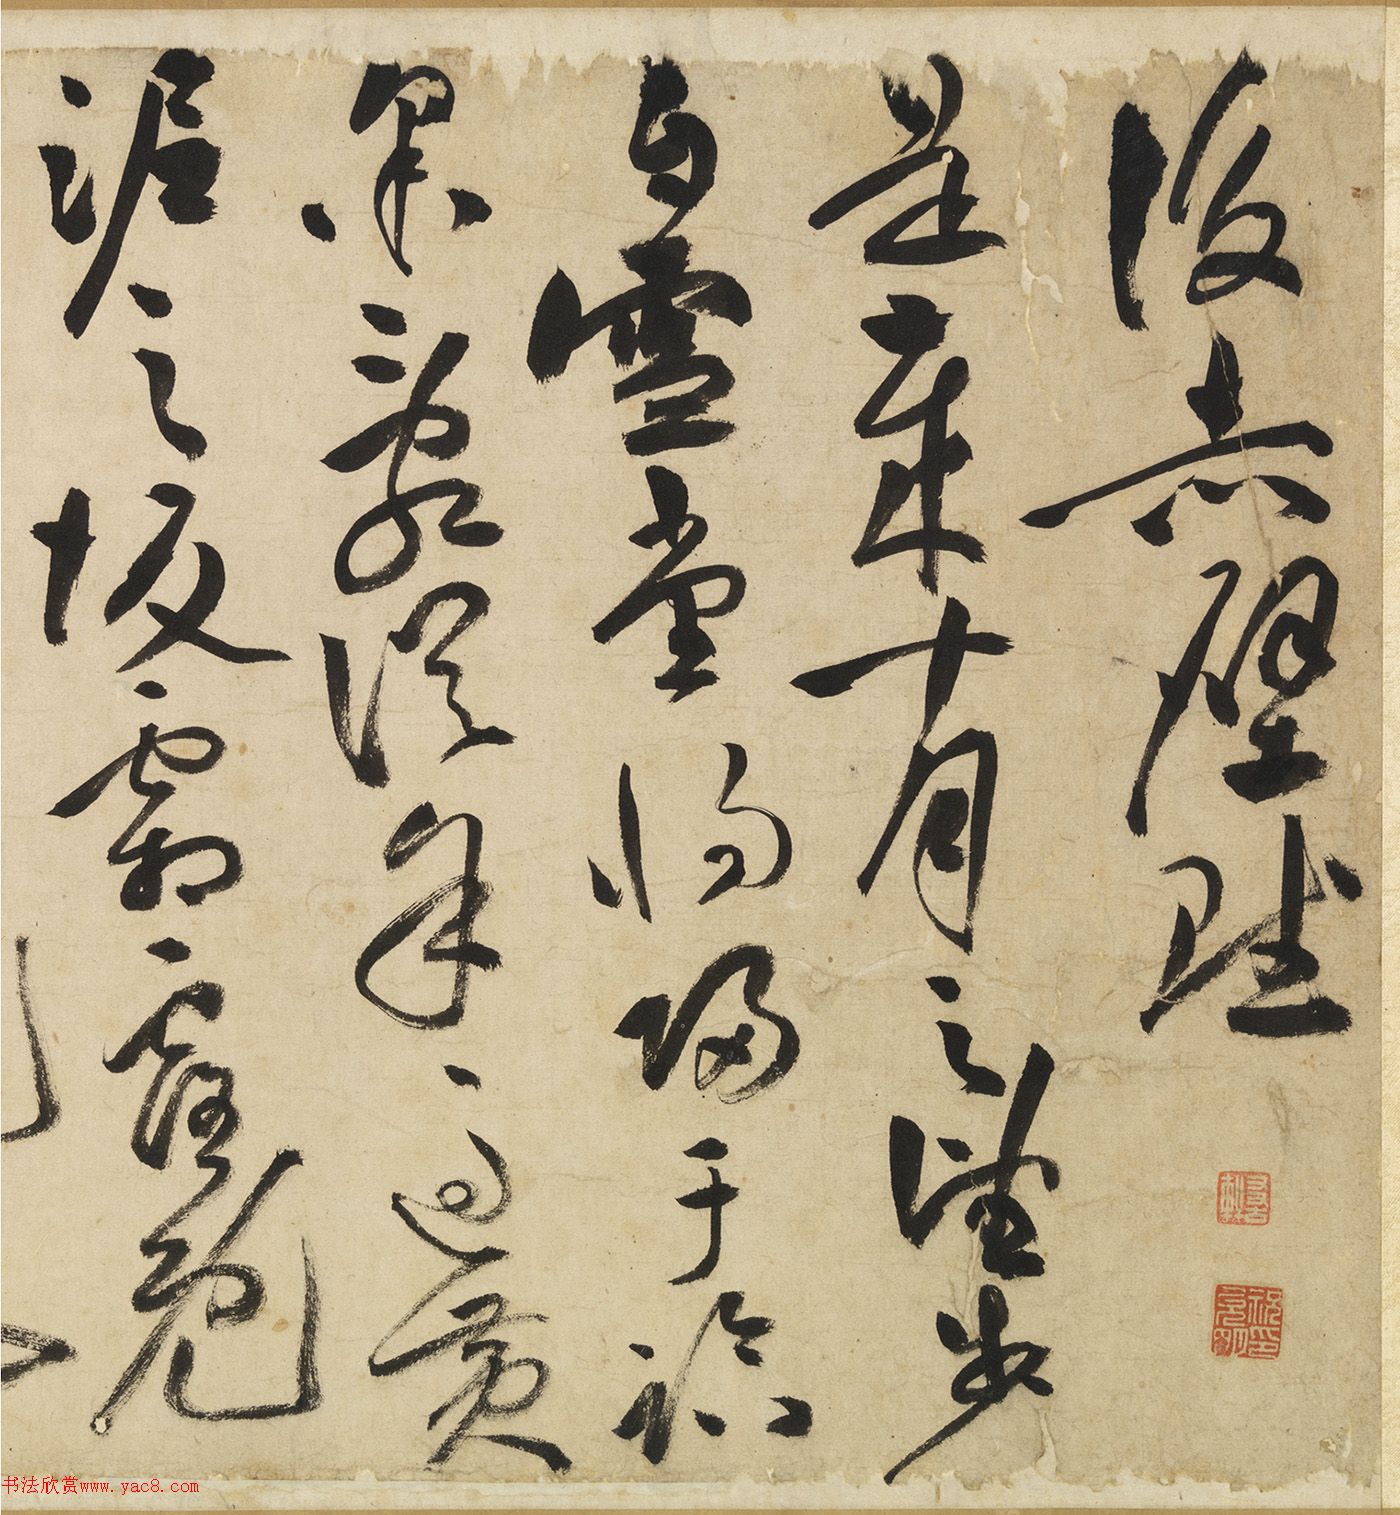 後赤壁賦
是歲十月之望步
自雪堂將歸于臨
皋二客從予過黃
泥之坂霜露既
书法欣赏www.yac8.com